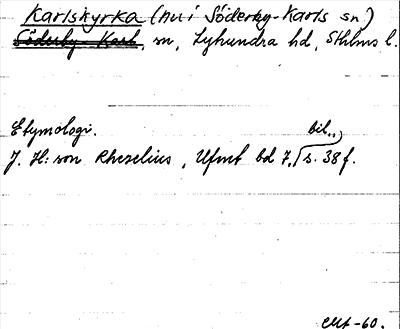 Karlskyrka (nu i Söderby-Karls sn.)
Söderby-Karl, sn, Lyhundra hd, Sthlms l.
Etymologi.
bil.,
J. H:son Rhezelius, Ufmt bd 7, s. 38 f.
-60.